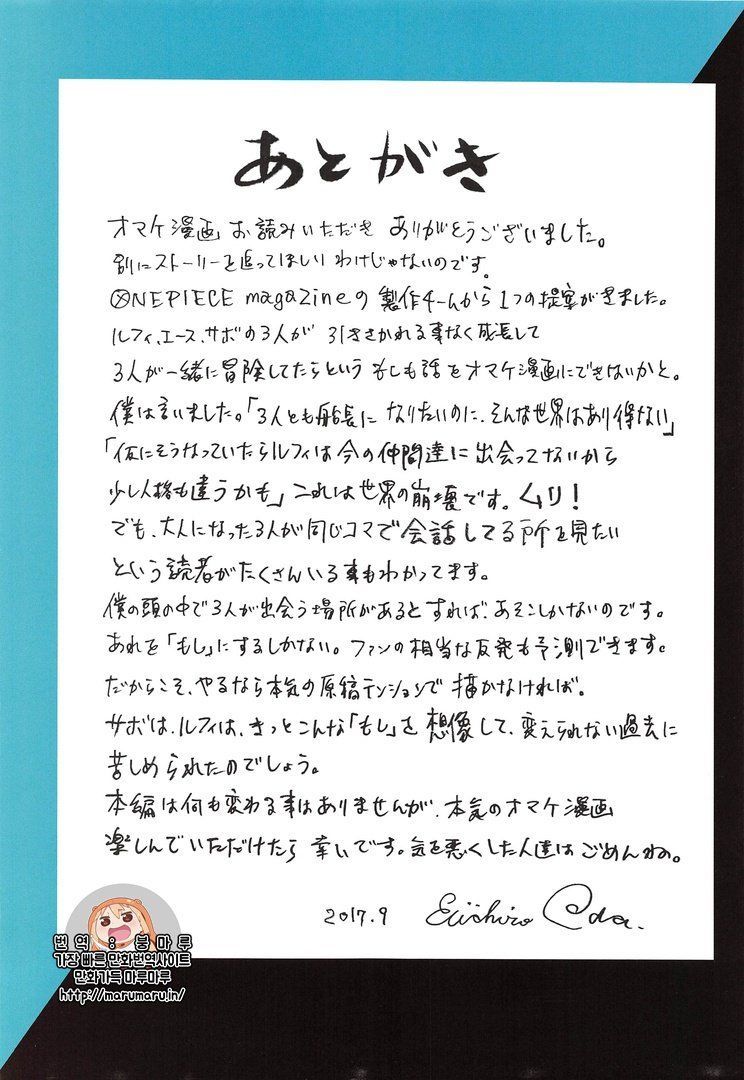 あとがき
オマケ漫画 お読みいただき ありがとうございました。
別にストーリーを追ってほしいわけじゃないのです。
ONEPIECE magazineの製作チームから1つの提案がきました。
ルフィ、エース、サボの3人が 引きさかれる事なく成長して
3人が一緒に冒険してたらという もしも話をオマケ漫画にできないかと。
僕は言いました。「3人とも船長に なりたいのに、そんな世界はあり得ない」
「仮にそうなっていたらルフィは今の仲間達に出会ってないから
少し人格も違うかも」これは世界の崩壊です。ムリ!
でも、大人になった3人が同じコマで会話してる所を見たい
という読者がたくさんいる事もわかってます。
僕の頭の中で3人が出会う場所があるとすれば、あそこしかないのです。
あれを「もし」にするしかない。ファンの相当な反発も予測できます。
だからこそ、やるなら本気の原稿テンションで描かなければ。
サボは、ルフィは、きっとこんな「もし」を想像して、変えられない過去に
苦しめられたのでしょう。
本編は何も変わる事はありませんが、本気のオマケ漫画
楽しんでいただけたら幸いです。気を悪くした人達はごめんね。
2017.9 Eiichiro Oda.
번역 : 붕마루
가장 빠른 만화번역사이트
만화가득 마루마루
http://marumaru.in/